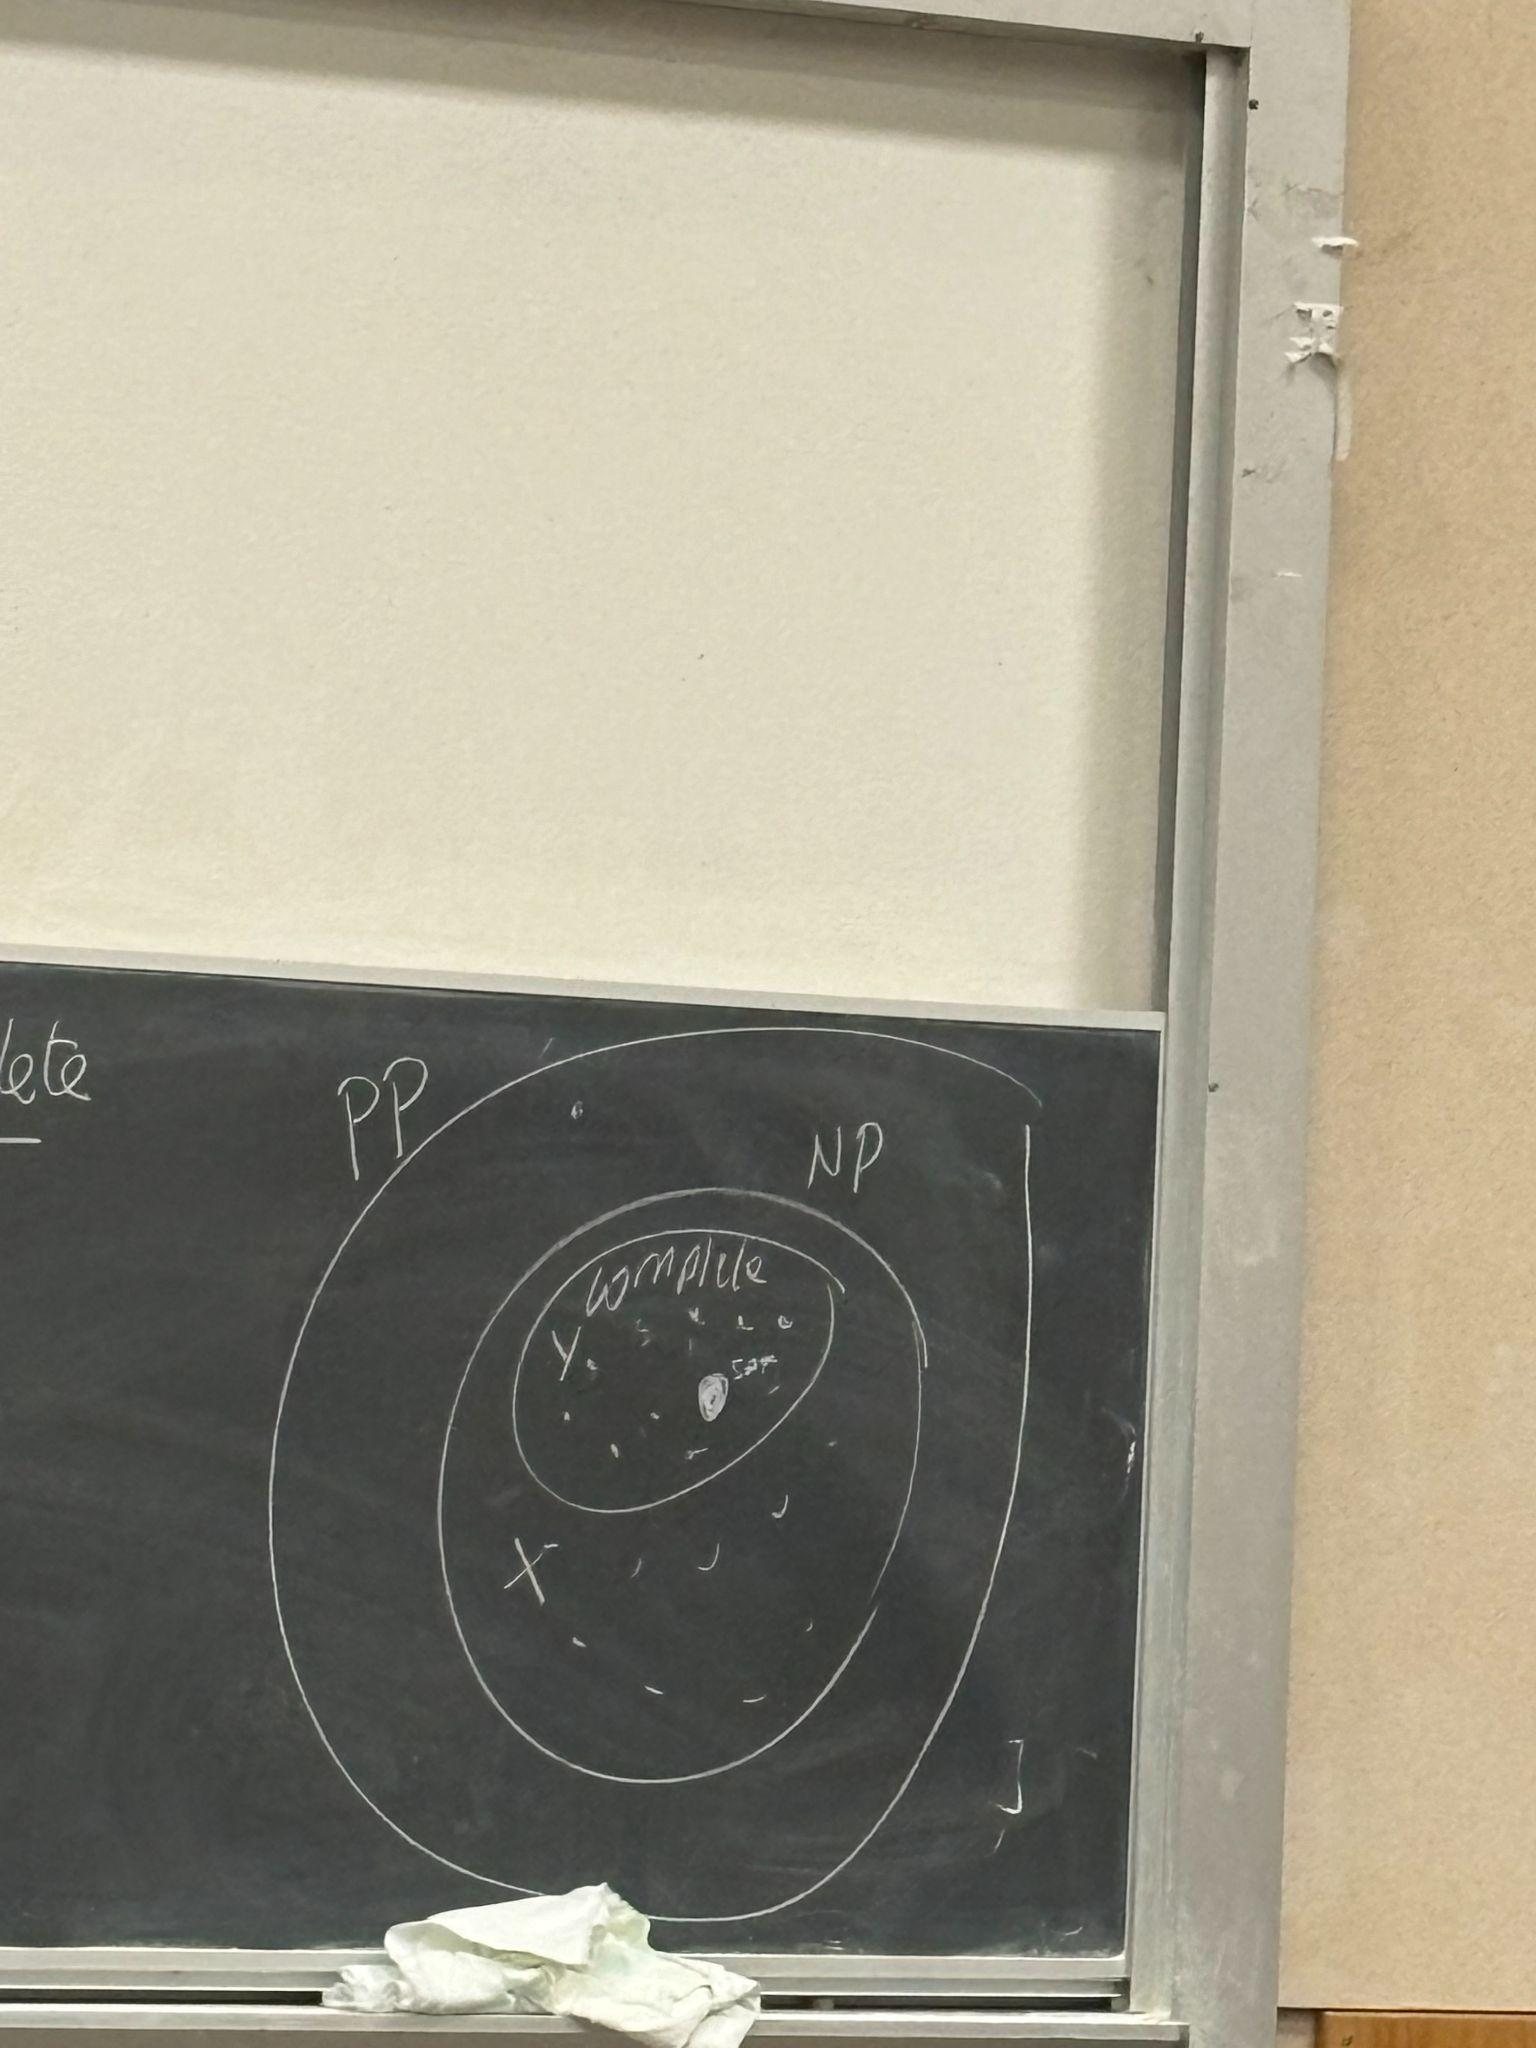 lete
PP
NP
complete
Y
SAT
X